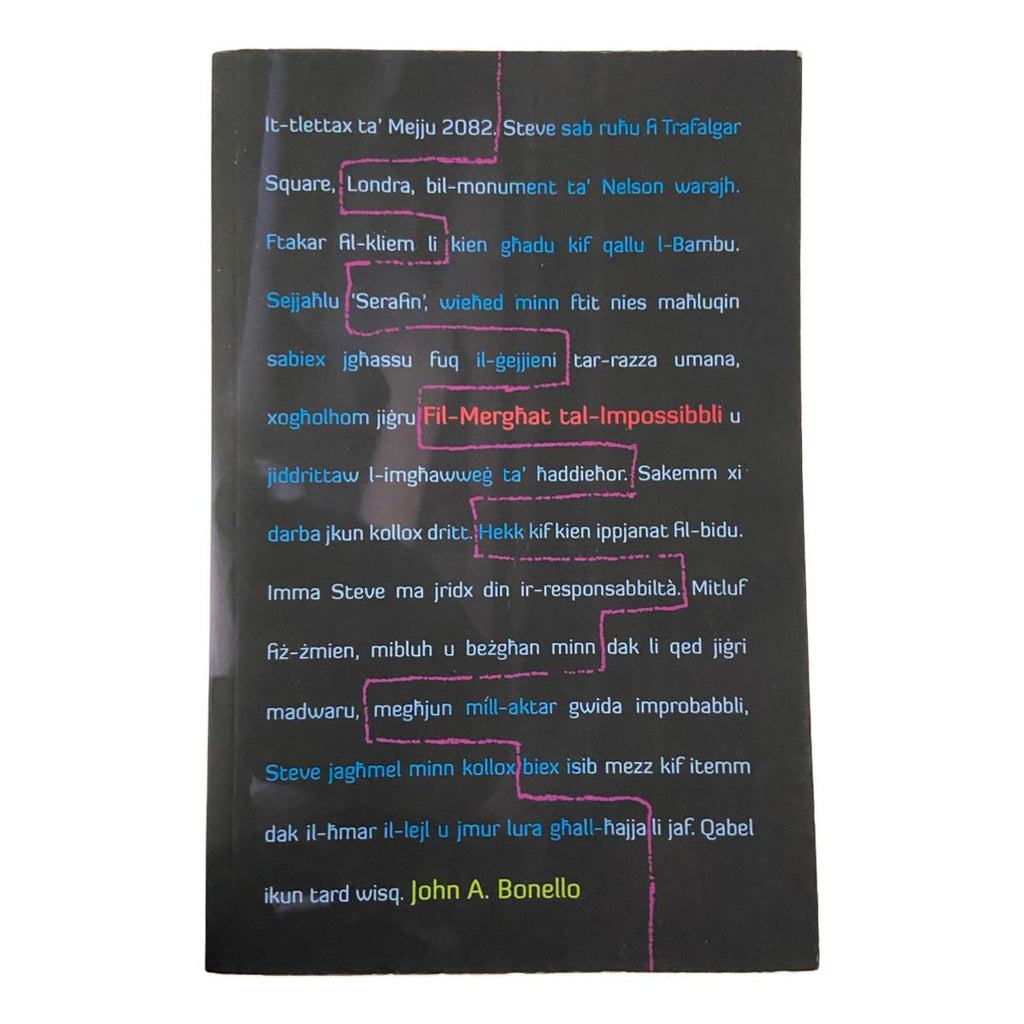 It-tlettax ta' Mejju 2082. Steve sab ruħu fi Trafalgar
Square, Londra, bil-monument ta' Nelson warajh.
Ftakar fil-kliem li kien għadu kif qallu l-Bambu.
Sejjaħlu 'Serafin', wieħed minn ftit nies maħluqin
sabiex jgħassu fuq il-ġejjieni tar-razza umana,
xogħolhom jiġru Fil-Mergħat tal-Impossibbli u
jiddrittaw l-imgħawweġ ta' ħaddieħor. Sakemm xi
darba jkun kollox dritt. Hekk kif kien ippjanat fil-bidu.
Imma Steve ma jridx din ir-responsabbiltà. Mitluf
fiż-żmien, mibluh u beżgħan minn dak li qed jiġri
madwaru, megħjun mill-aktar gwida improbabbli,
Steve jagħmel minn kollox biex isib mezz kif itemm
dak il-ħmar il-lejl u jmur lura għall-ħajja li jaf. Qabel
ikun tard wisq. John A. Bonello